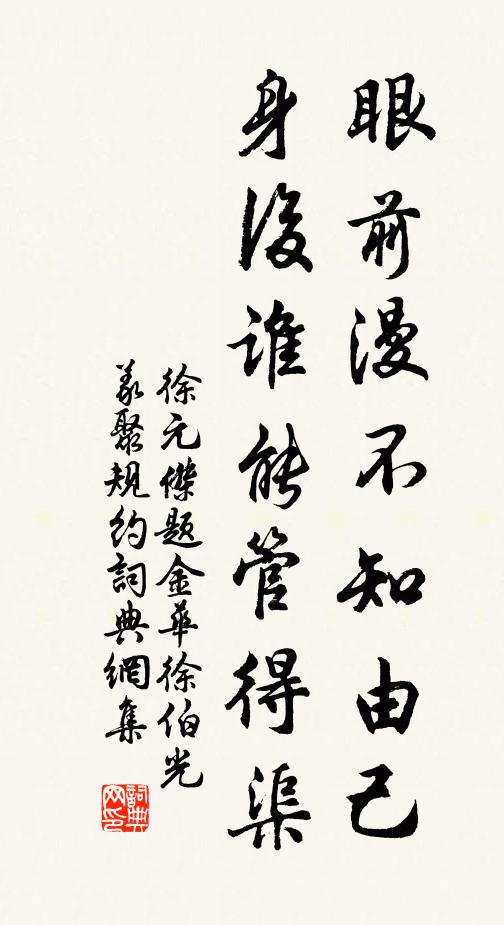 眼前漫不知由己
身後誰能管得渠
徐元傑題金華徐伯光
義聚規約詞典網集
詞典网印